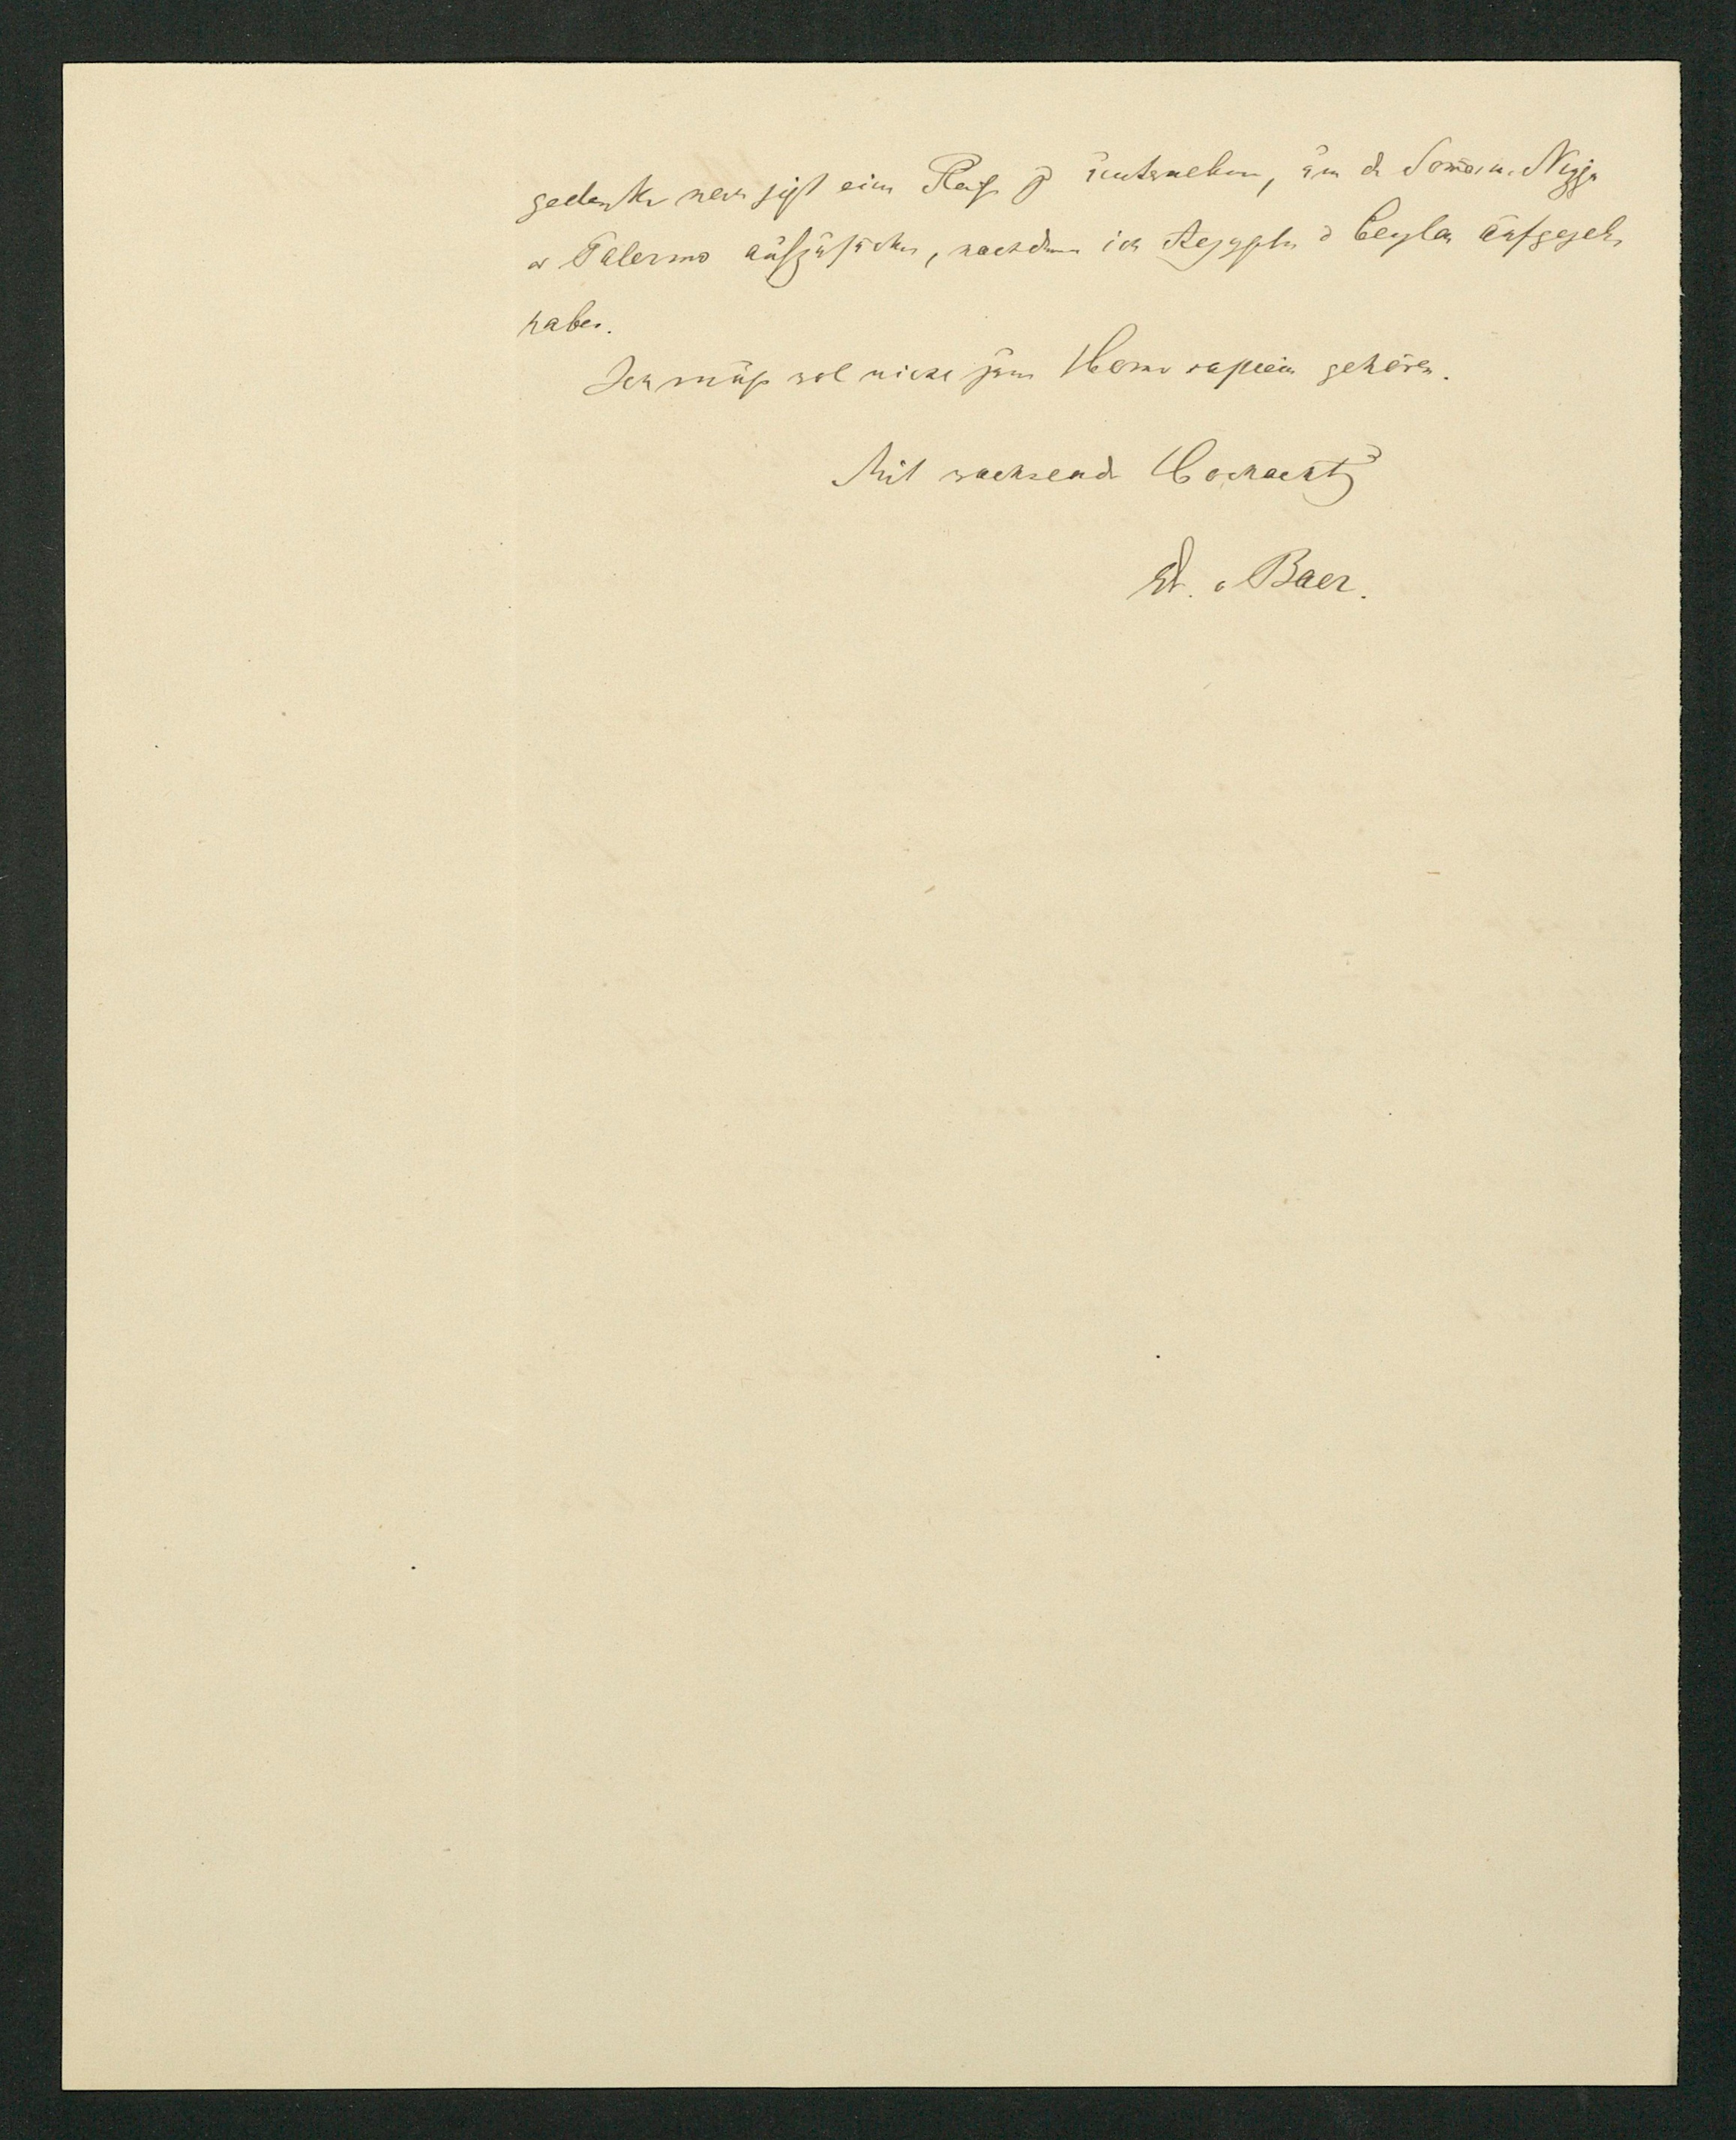 gedenke noch jetzt eine Reise zu unternehmen, um d Somer in Nizza
o Palermo aufzusuchen, nachdem ich Aegypten u Ceylon aufgegeben
habe.
Ich muss wol nicht zum Homo sapiens gehören.
Mit wachsender Hochachtg
Ed. v Baer.